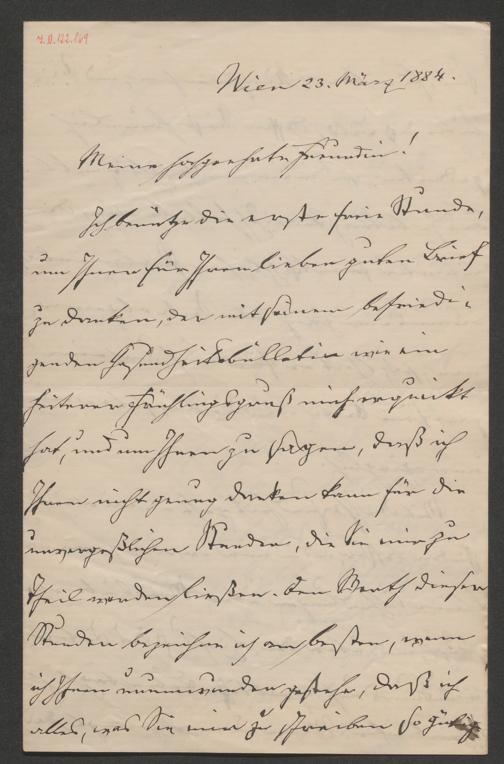 I.N. 122.169
Wien 23. März 1884.
Meine hochgeehrte Freundin!
Ich benütze die erste freie Stunde,
um Ihnen für Ihren lieben guten Brief
zu danken, der mit seinem befriedi-
genden Gesundheitsbülletin wie ein
heiterer Frühlingsgruß mich erquickt
hat, und um Ihnen zu sagen, daß ich
Ihnen nicht genug danken kann für die
unvergeßlichen Stunden, die Sie mir zu
Theil werden ließen. Den Werth dieser
Stunden bezeichne ich am besten, wenn
ich Ihnen unumwunden gestehe, daß ich
alles, was Sie mir zu schreiben so gütig